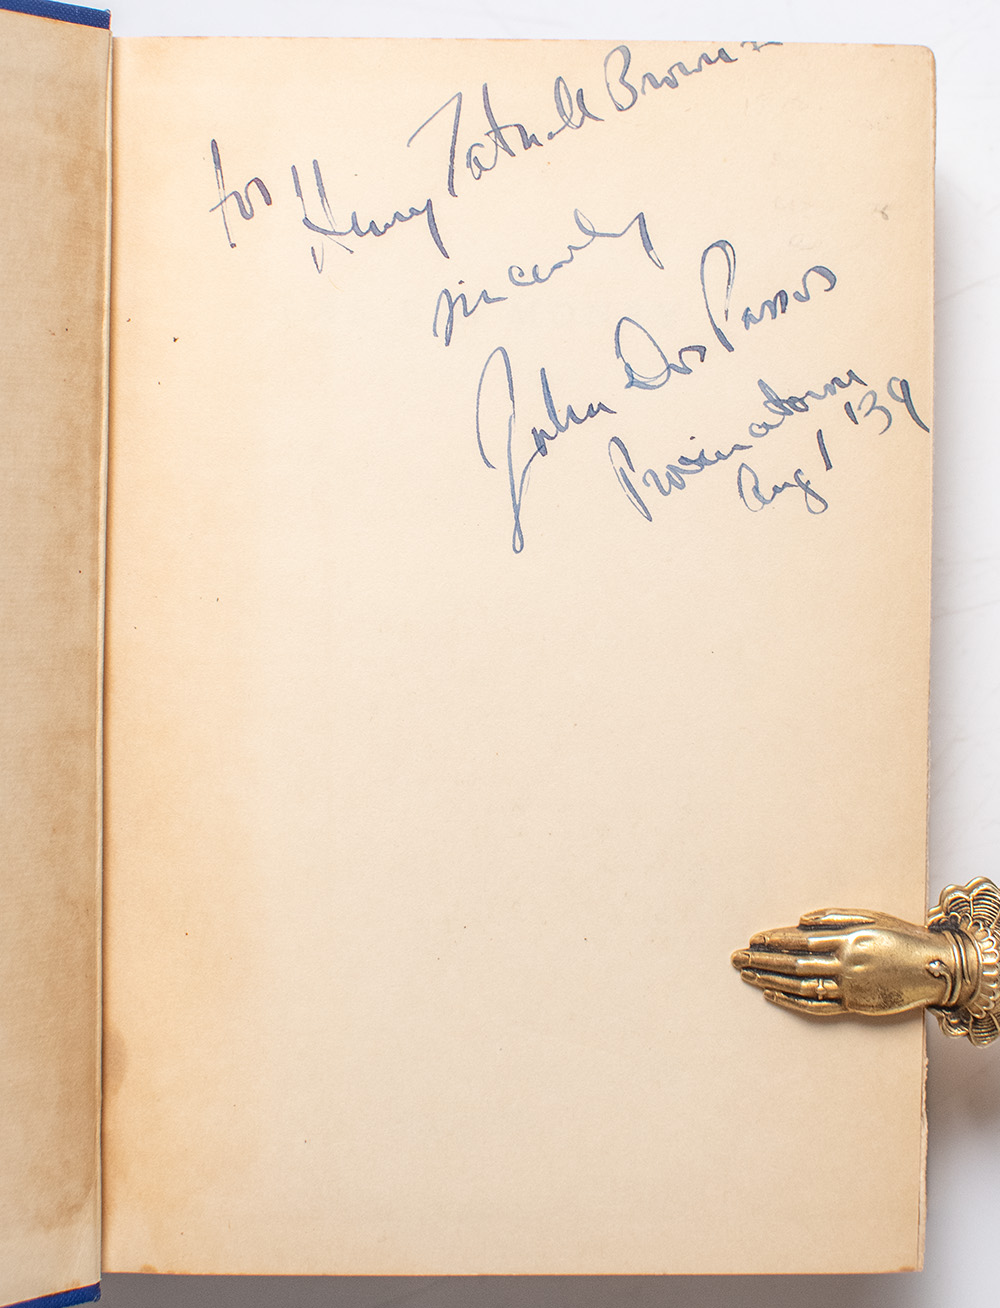 for Henry Tatnall Brown
sincerely
John Dos Passos
Provincetown
Aug 1 '39